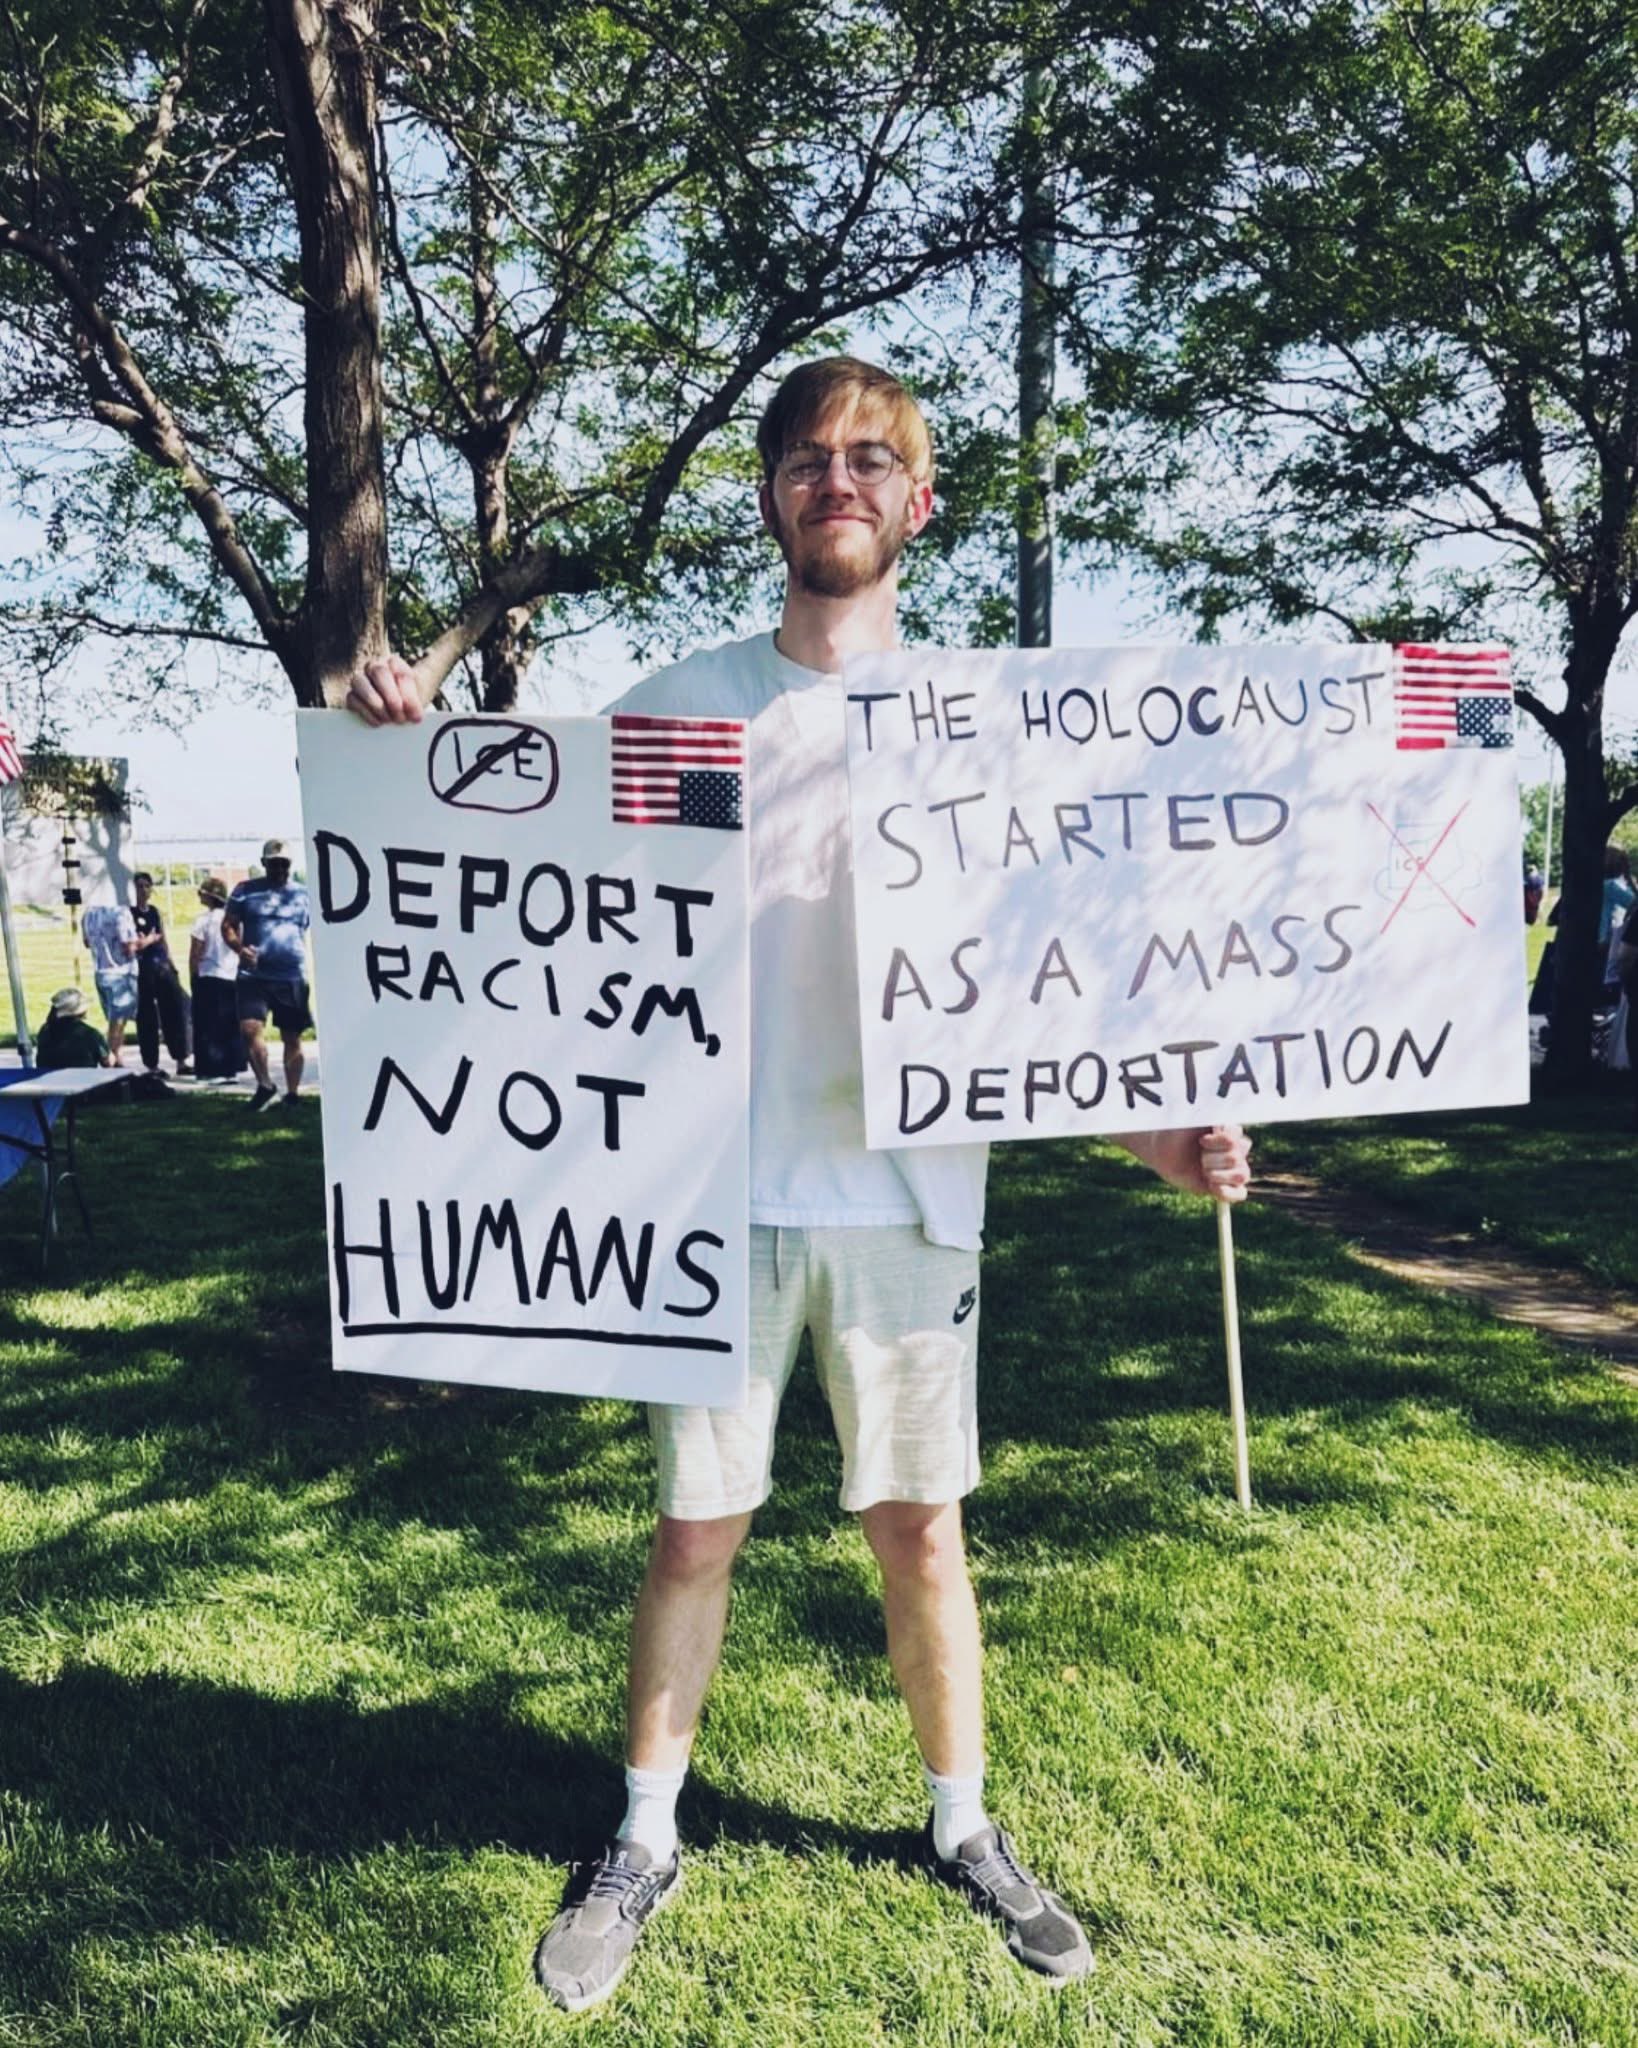 ICE
DEPORT
RACISM,
NOT
HUMANS
THE HOLOCAUST
STARTED
ICE
AS A MASS
DEPORTATION
NIKE